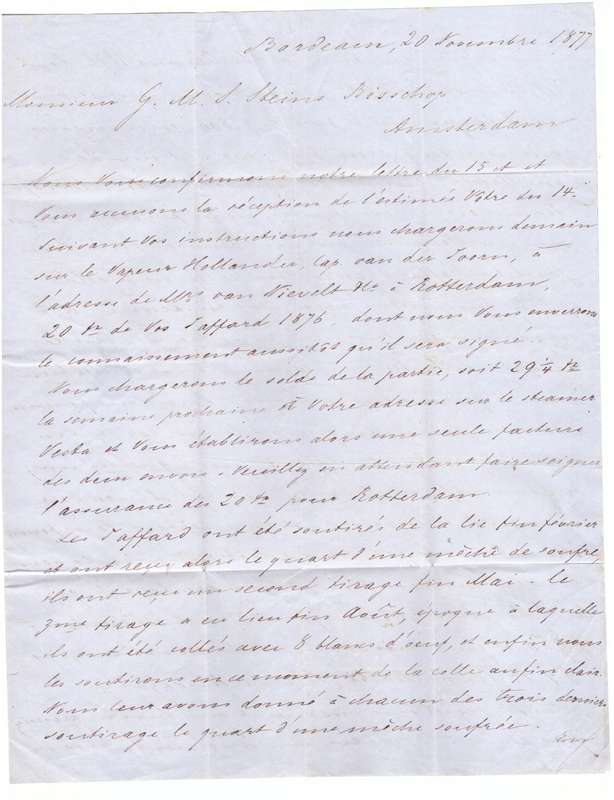 Bordeaux, 20 Novembre 1877
Monsieur G. M. S. Steins Bisschop
Amsterdam
Nous Vous confirmons notre lettre du 15 ct et
Vous accusons la réception de l'estimée Vôtre du 14.
Suivant Vos instructions nous chargerons demain
sur le Vapeur Hollander, Cap. van der Toorn, à
l'adresse de Mrs van Nievelt & à Rotterdam,
20 de Vos Taffard 1876, dont nous Vous enverrons
le connaissement aussitôt qu'il sera signé.
Nous chargerons le solde de la partie, soit 29 1/4
la semaine prochaine à Votre adresse sur le steamer
Vesta et Vous établirons alors une seule facture
des deux envois. Veuillez en attendant faire soigner
l'assurance des 20 pour Rotterdam.
Les Taffard ont été soutirés de la lie fin février
et ont reçu alors le quart d'une mêche de soufre,
ils ont reçu un second tirage fin Mai. Le
3me tirage a eu lieu fin Août, époque à laquelle
ils ont été collés avec 8 blancs d'oeuf, et enfin nous
les soutirons en ce moment de la colle au fin clair.
Nous leur avons donné à chacun des trois derniers
soutirage le quart d'une mêche soufrée.